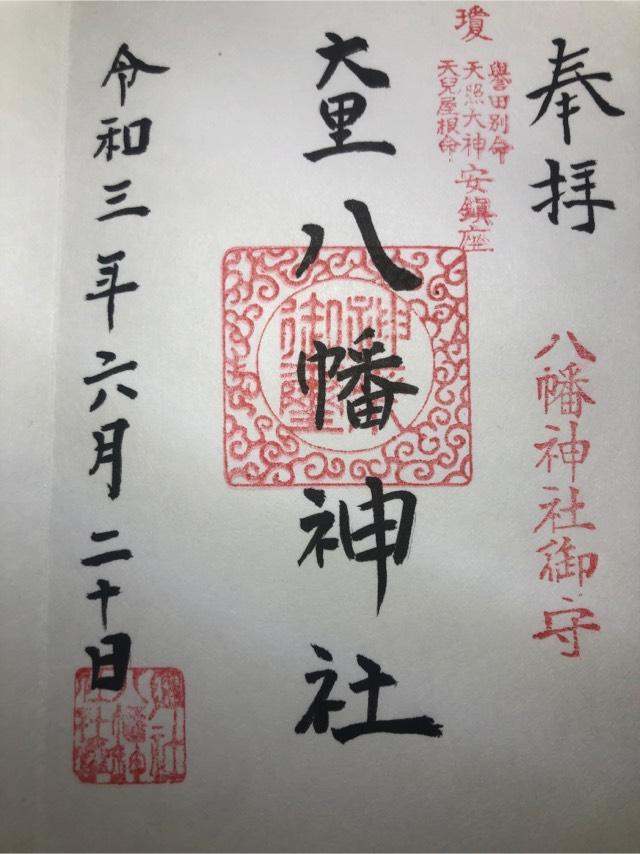 奉拝
八幡神社御守
瓊
譽田別命
天照大神
天兒屋根命
安鎮座
大里八幡神社
令和三年六月二十日